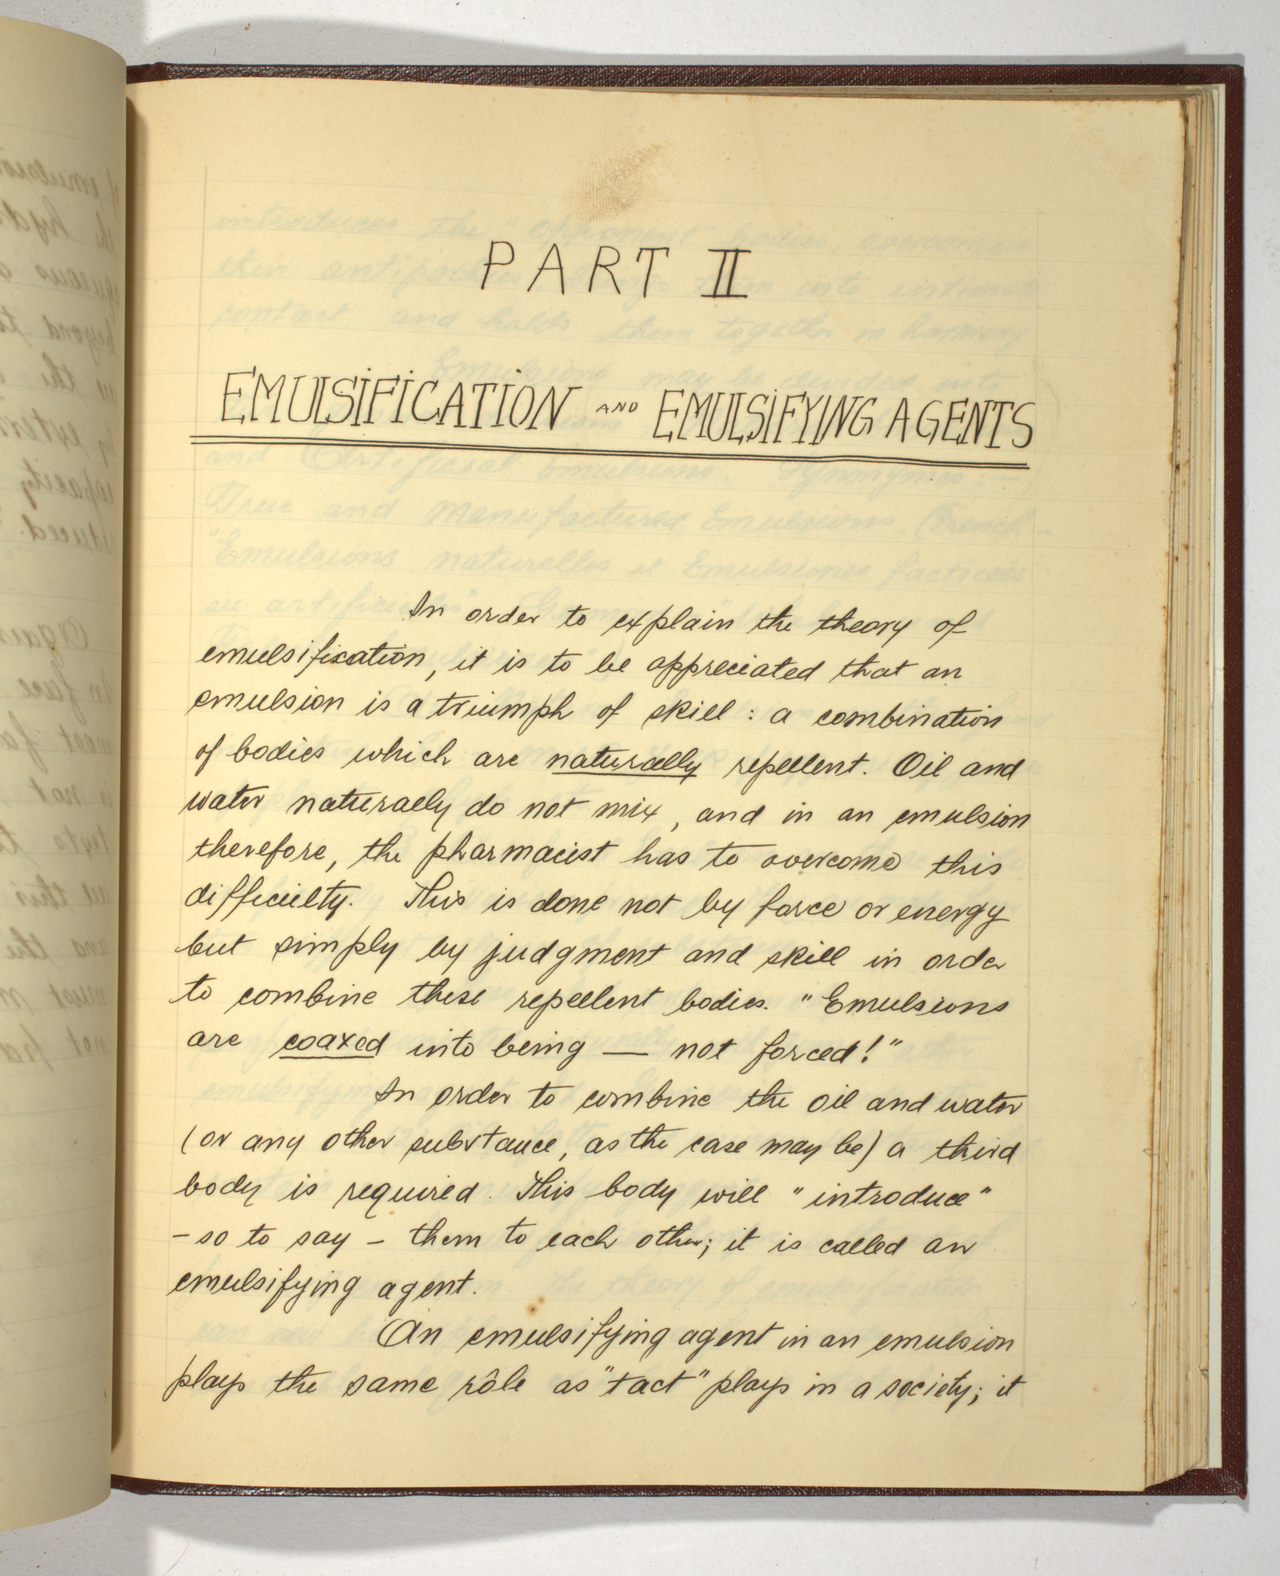 PART II
EMULSIFICATION AND EMULSIFYING AGENTS
In order to explain the theory of
emulsification, it is to be appreciated that an
emulsion is a triumph of skill : a combination
of bodies which are naturally repellent. Oil and
water naturally do not mix, and in an emulsion
therefore, the pharmacist has to overcome this
difficulty. This is done not by force or energy
but simply by judgment and skill in order
to combine these repellent bodies. "Emulsions
are coaxed into being — not forced!"
In order to combine the oil and water
(or any other substance, as the case may be) a third
body is required. This body will "introduce"
- so to say - them to each other; it is called an
emulsifying agent.
An emulsifying agent in an emulsion
plays the same rôle as "tact" plays in a society; it